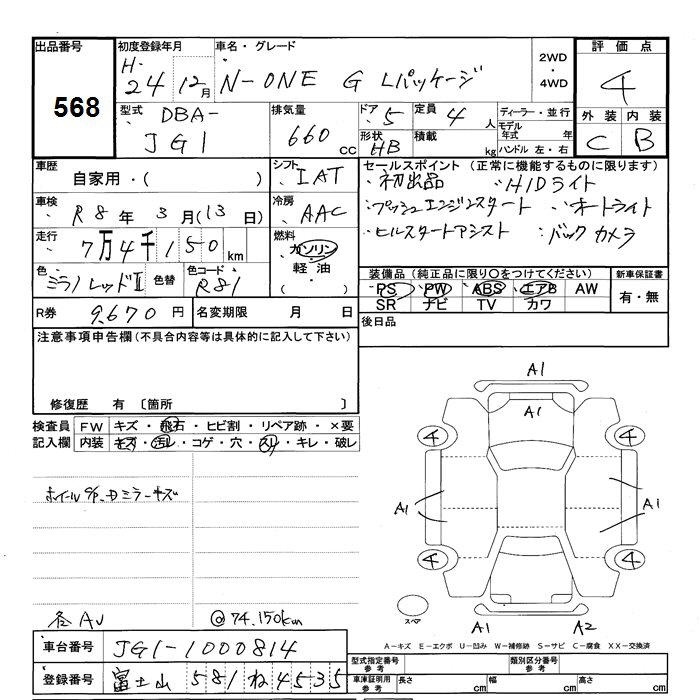 出品番号 初度登録年月 車名・グレード 2WD・4WD 評価点
568 H-24 12月 N-ONE G Lパッケージ 4
型式 DBA-JG1 排気量 660cc ドア 5 形状 HB 定員 4人 積載 kg ディーラー・並行 モデル年式 年式 ハンドル 左・右 外装 内装
C B
車歴 自家用・( ) シフト IAT セールスポイント (正常に機能するものに限ります)
・初出品 ・HIDライト
車検 R8年3月(13日) 冷房 AAC ・プッシュエンジンスタート ・オートライト
走行 7万4千150km 燃料 ガソリン・軽油・( ) ・ヒルスタートアシスト ・バックカメラ
色 ミラノレッドⅡ 色替 色コード R81 装備品 (純正品に限り○をつけてください) 新車保証書
PS PW ABS エアB AW 有・無
SR ナビ TV カワ
R券 9670円 名変期限 月 日 後日品
注意事項申告欄 (不具合内容等は具体的に記入して下さい)
修復歴 有 〔箇所 〕
検査員記入欄 FW キズ・飛石・ヒビ割・リペア跡・×要
内装 キズ・汚レ・コゲ・穴・スリ・キレ・破レ
キズ
A1
A1
4 4
A1 A1
4 4
スペア
A1 A2
各AU @74.150km
A-キズ E-エクボ U-凹み W-補修跡 S-サビ C-腐食 XX-交換済
車台番号 JG1-1000814
型式指定番号 参考 類別区分番号 参考
登録番号 富士山 581 ね 4535
車庫証明用 参考 長さ cm 幅 cm 高さ cm